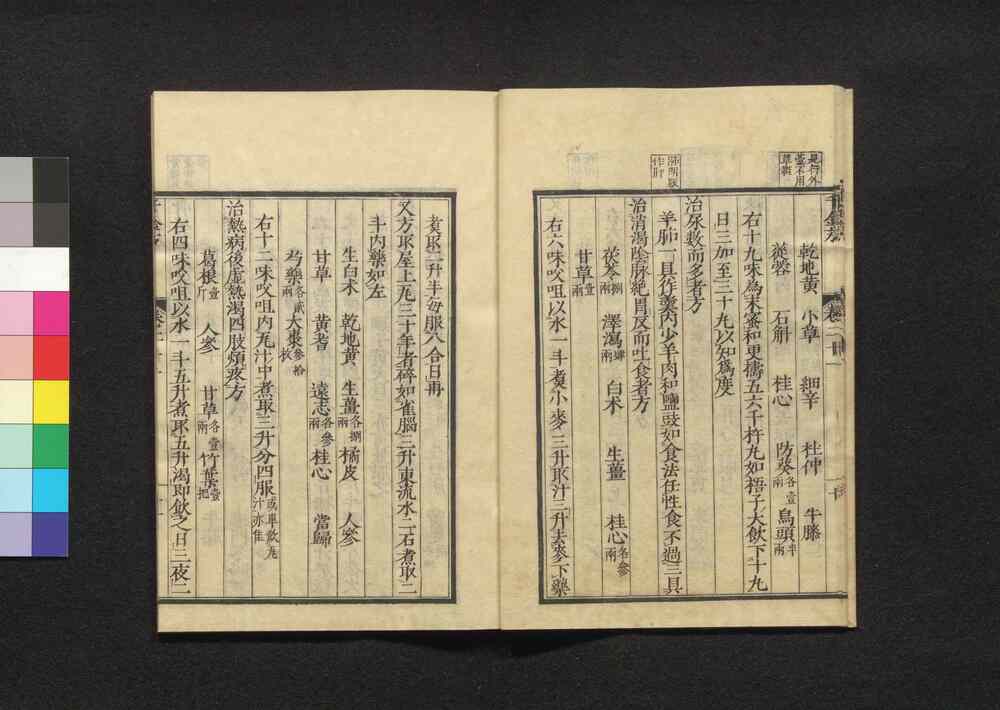 乾地黄　小草　細辛　杜仲　牛膝
蓯蓉　石斛　桂心　防葵各壹兩　烏頭半兩
右十九味爲末蜜和更擣五六千杵丸如梧子大飲下十丸
日三加至三十丸以知爲度
治尿數而多者方
羊肺一具作羹内少羊肉和鹽豉如食法任性食不過三具
治消渴陰脉絶胃反而吐食者方
茯苓捌兩　澤瀉肆兩　白术　生薑　桂心各參兩
甘草壹兩
右六味㕮咀以水一斗煮小麥三升取汁三升去麥下藥
煮取二升半每服八合日再
又方取屋上瓦三十年者碎如雀腦三升東流水二石煮取二
斗内藥如左
生白术　乾地黄　生薑各捌兩　橘皮　人參
甘草　黄耆　遠志各參兩　桂心　當歸
芍藥各貳兩　大棗參拾枚
右十二味㕮咀内瓦汁中煮取三升分四服或單飲瓦汁亦佳
治熱病後虛熱渴四肢煩疼方
葛根壹斤　人參　甘草各壹兩　竹葉壹把
右四味㕮咀以水一斗五升煮取五升渴即飲之日三夜二